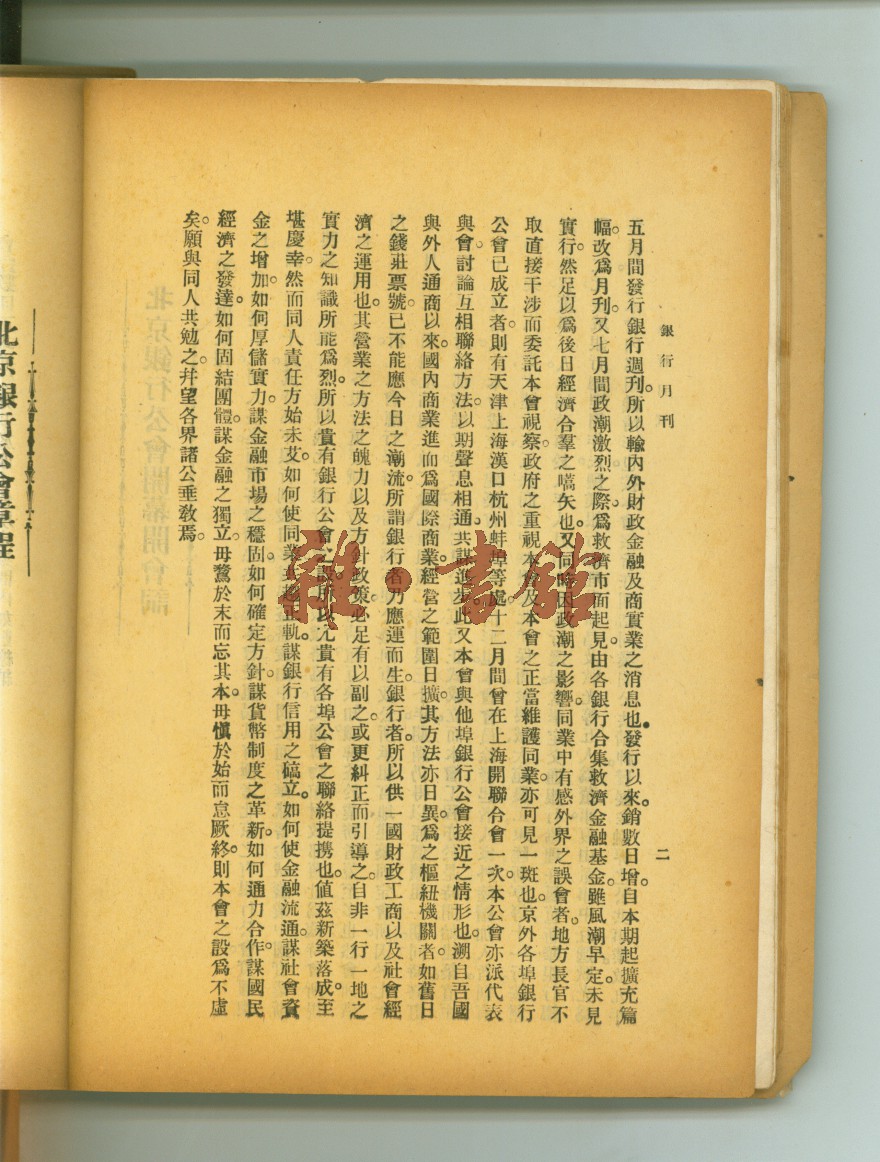 銀行月刊
二
五月間發行銀行週刊。所以輸內外財政金融及商實業之消息也。發行以來。銷數日增。自本期起擴充篇
幅。改爲月刊。又七月間政潮激烈之際。爲救濟市面起見。由各銀行合集救濟金融基金。雖風潮早定。未見
實行。然足以爲後日經濟合羣之嚆矢也。又同時因政潮之影響。同業中有感外界之誤會者。地方長官不
取直接干涉而委託本會視察。政府之重視本會及本會之正當維護同業。亦可見一斑也。京外各埠銀行
公會已成立者。則有天津上海漢口杭州蚌埠等處。十二月間曾在上海開聯合會一次。本公會亦派代表
與會。討論互相聯絡方法。以期聲息相通。共謀進步。此又本會與他埠銀行公會接近之情形也。溯自吾國
與外人通商以來。國內商業進而爲國際商業。經營之範圍日擴。其方法亦日異。爲之樞紐機關者。如舊日
之錢莊票號。已不能應今日之潮流。所謂銀行者乃應運而生。銀行者。所以供一國財政工商以及社會經
濟之運用也。其營業之方法之魄力以及方針政策。必足有以副之。或更糾正而引導之。自非一行一地之
實力之知識所能爲烈。所以貴有銀行公會之設。所以尤貴有各埠公會之聯絡提携也。値茲新築落成。至
堪慶幸。然而同人責任方始未艾。如何使同業共趨正軌。謀銀行信用之確立。如何使金融流通。謀社會資
金之增加。如何厚儲實力。謀金融市場之穩固。如何確定方針。謀貨幣制度之革新。如何通力合作。謀國民
經濟之發達。如何固結團體。謀金融之獨立。毋騖於末而忘其本。毋愼於始而怠厥終。則本會之設爲不虛
矣。願與同人共勉之。幷望各界諸公垂敎焉。
北京銀行公會章程
雅·書館